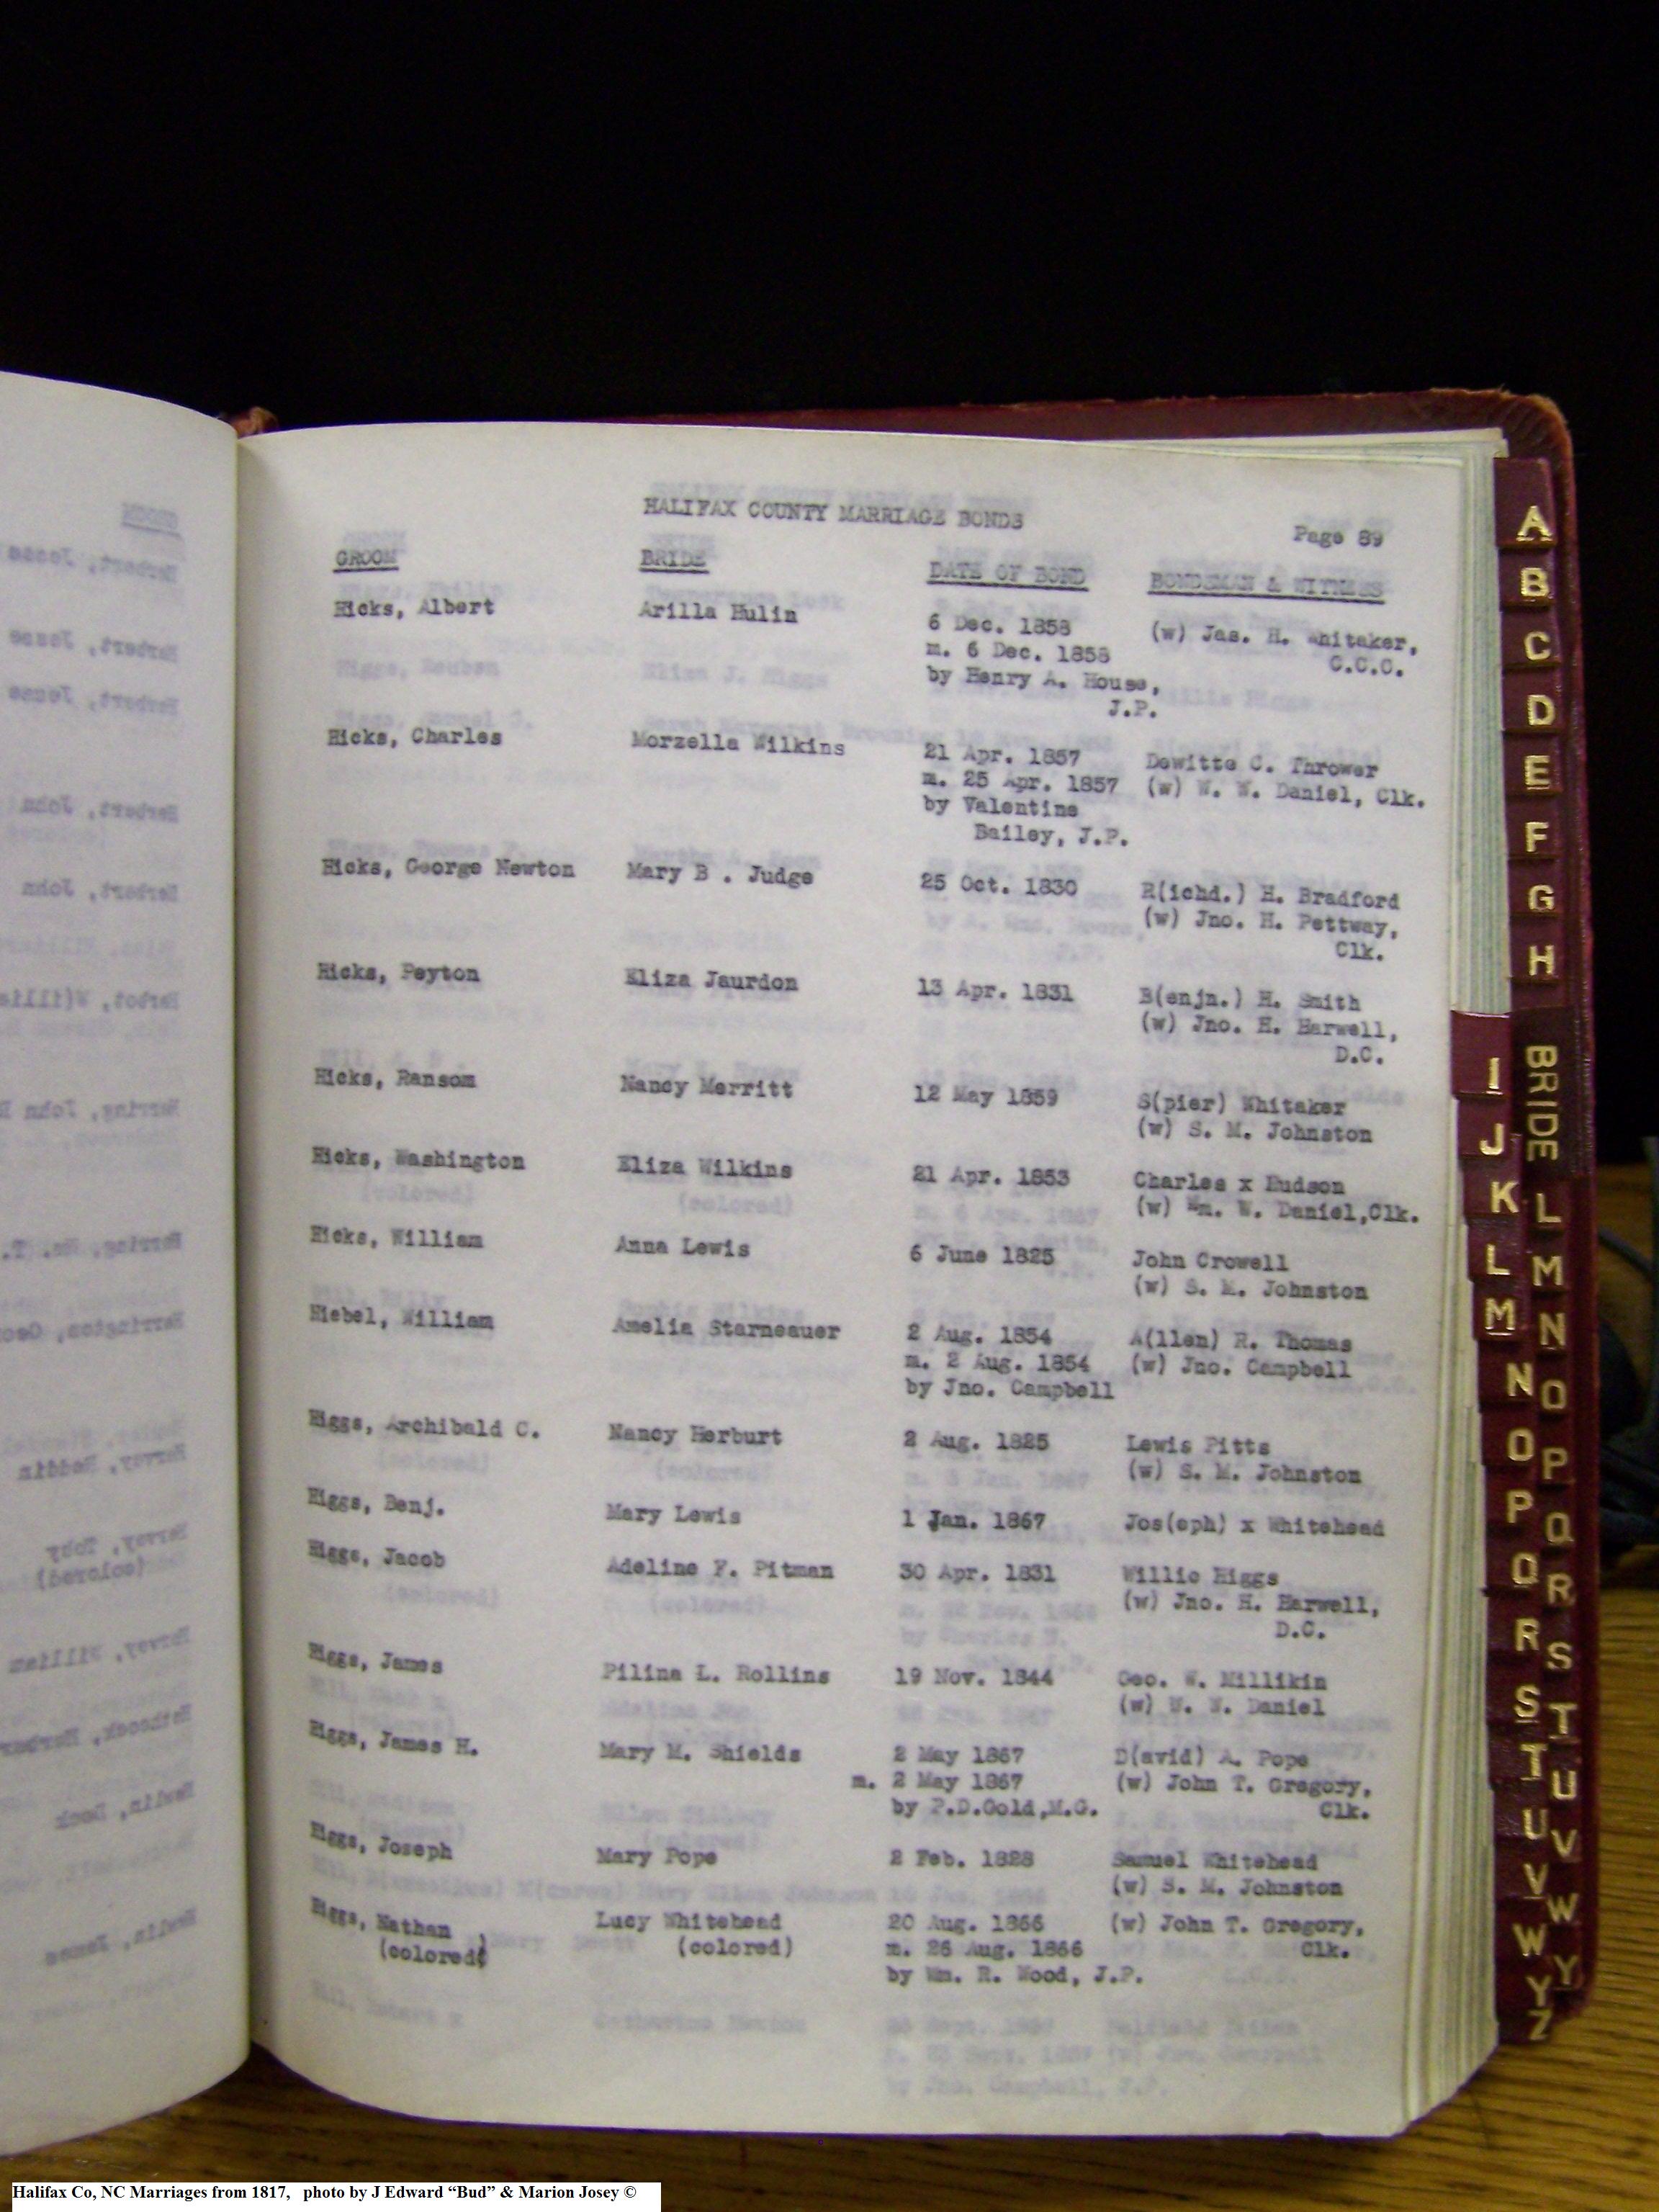 HALIFAX COUNTY MARRIAGE BONDS
Page 89
GROOM BRIDE DATE OF BOND BONDSMAN & WITNESS
Hicks, Albert Arilla Hulin 6 Dec. 1858 (w) Jas. H. Whitaker,
m. 6 Dec. 1858 C.C.C.
by Henry A. House,
J.P.
Hicks, Charles Morzella Wilkins 21 Apr. 1857 Dewitte C. Thrower
m. 25 Apr. 1857 (w) W. W. Daniel, Clk.
by Valentine
Bailey, J.P.
Hicks, George Newton Mary B . Judge 25 Oct. 1830 R(ichd.) H. Bradford
(w) Jno. H. Pettway,
Clk.
Hicks, Peyton Eliza Jaurdon 13 Apr. 1831 B(enjn.) H. Smith
(w) Jno. H. Harwell,
D.C.
Hicks, Ransom Nancy Merritt 12 May 1859 S(pier) Whitaker
(w) S. M. Johnston
Hicks, Washington Eliza Wilkins 21 Apr. 1853 Charles x Hudson
(w) Wm. W. Daniel,Clk.
Hicks, William Anna Lewis 6 June 1825 John Crowell
(w) S. M. Johnston
Hiebel, William Amelia Starneauer 2 Aug. 1854 A(llen) R. Thomas
m. 2 Aug. 1854 (w) Jno. Campbell
by Jno. Campbell
Higgs, Archibald C. Nancy Herburt 2 Aug. 1825 Lewis Pitts
(w) S. M. Johnston
Higgs, Benj. Mary Lewis 1 Jan. 1867 Jos(eph) x Whitehead
Higgs, Jacob Adeline F. Pitman 30 Apr. 1831 Willie Higgs
(w) Jno. H. Harwell,
D.C.
Higgs, James Pilina L. Rollins 19 Nov. 1844 Geo. W. Millikin
(w) W. W. Daniel
Higgs, James H. Mary M. Shields 2 May 1867 D(avid) A. Pope
m. 2 May 1867 (w) John T. Gregory,
by P.D.Gold,M.G. Clk.
Higgs, Joseph Mary Pope 2 Feb. 1828 Samuel Whitehead
(w) S. M. Johnston
Higgs, Nathan Lucy Whitehead 20 Aug. 1866 (w) John T. Gregory,
(colored) (colored) m. 26 Aug. 1866 Clk.
by Wm. R. Wood, J.P.
A
B
C
D
E
F
G
H
BRIDE
I
J
K
L
M
N
O
P
Q
R
S
T
U
V
W
Y
Z
L
M
N
O
P
Q
R
S
T
U
V
W
Y
Halifax Co, NC Marriages from 1817, photo by J Edward “Bud” & Marion Josey ©